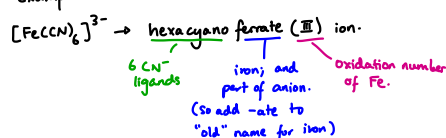 [Fe(CN)6]3- → hexacyano ferrate (III) ion.
6 CN- ligands
iron; and part of anion.
(so add -ate to "old" name for iron)
oxidation number of Fe.